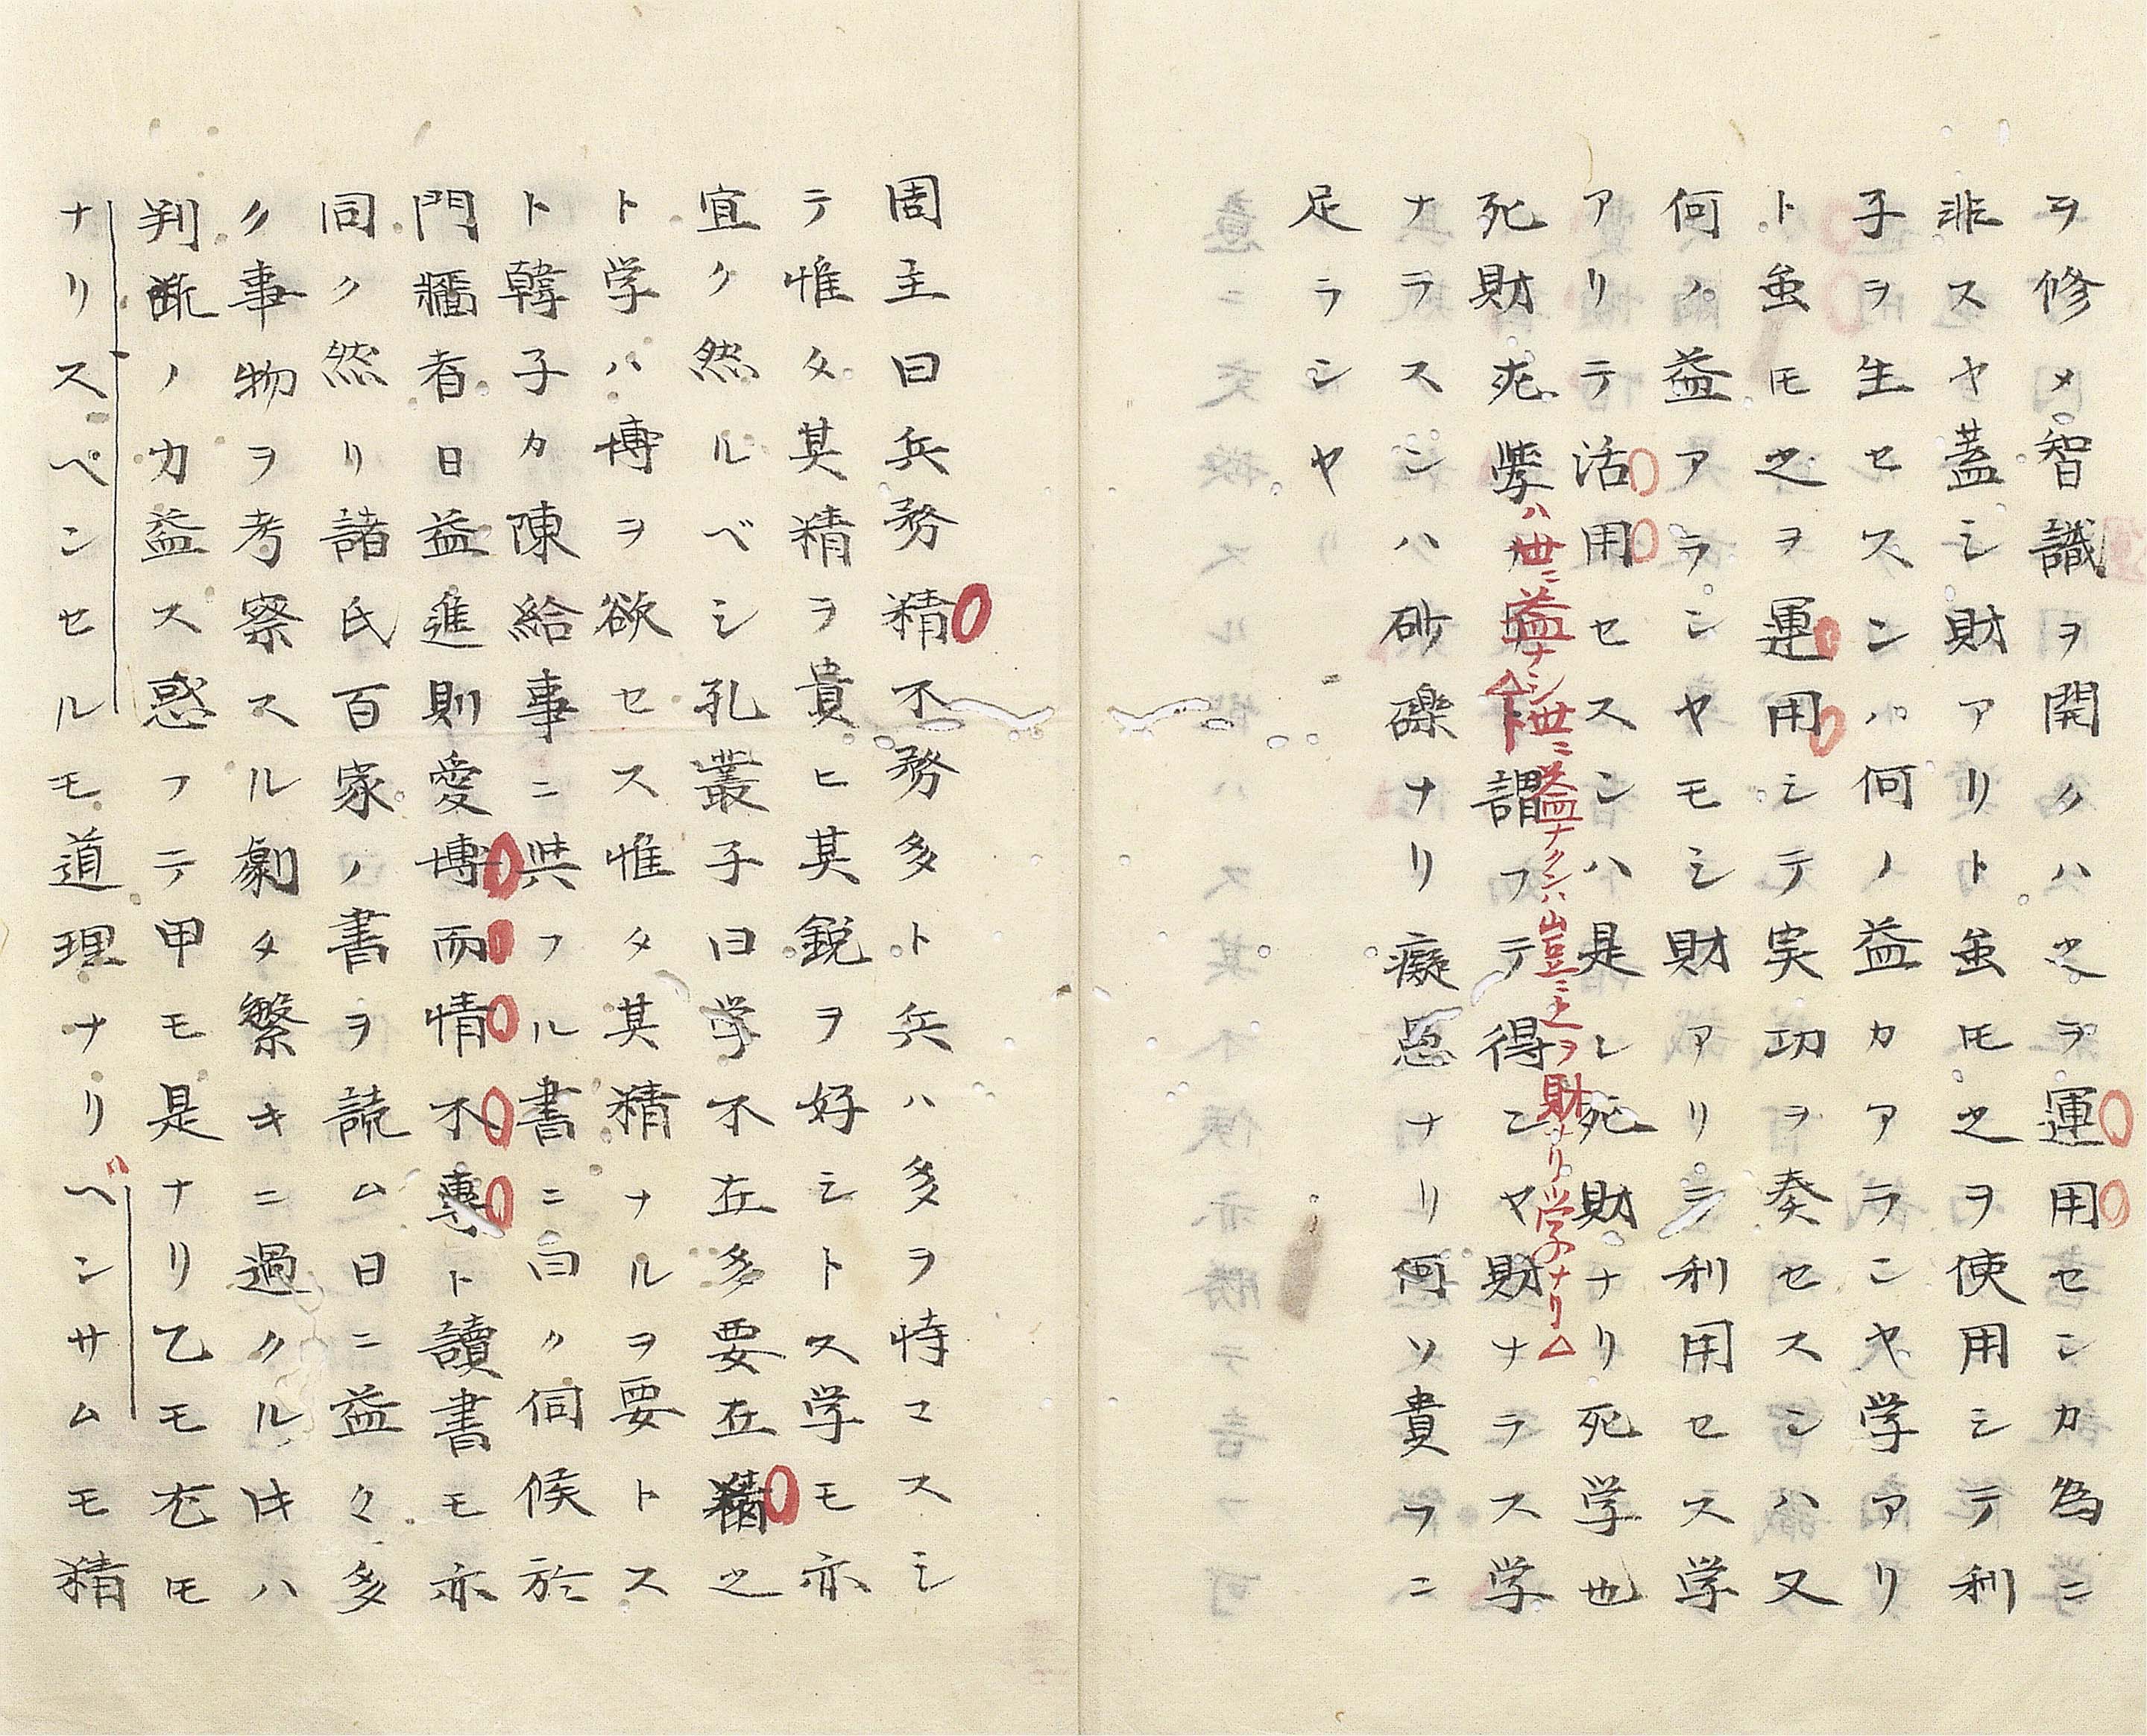 ヲ修メ智識ヲ開クハ之ヲ運用センカ為ニ
非スヤ蓋シ財アリト虽モ之ヲ使用シテ利
子ヲ生セスンハ何ノ益カアランヤ学アリ
ト虽モ之ヲ運用シテ実功ヲ奏セスンハ又
何ノ益アランヤモシ財アリテ利用セス学
アリテ活用セスンハ是レ死財ナリ死学也
死財死学ハ
世ニ益ナシ世ニ益ナクンハ豈ニ之ヲ財ナリ学ナリ
ト謂フテ得ンヤ財ナラス学
ナラスンハ砂礫ナリ癡愚ナリ何ソ貴フニ
足ランヤ
周主曰兵務精不務多ト兵ハ多ヲ恃マスシ
テ惟タ其精ヲ貴ヒ其鋭ヲ好シトス学モ亦
宜ク然ルベシ孔叢子曰学不在多要在精之
ト学ハ博ヲ欲セス惟タ其精ナルヲ要トス
ト韓子カ陳給事ニ与フル書ニ曰ク伺候於
門墻者日益進則愛博而情不専ト讀書モ亦
同ク然リ諸氏百家ノ書ヲ読ム日ニ益々多
ク事物ヲ考察スル劇タ繁キニ過クルトキハ
判断ノ力益ス惑フテ甲モ是ナリ乙モ尤モ
ナリスベンセルモ道理ナリベンサムモ精